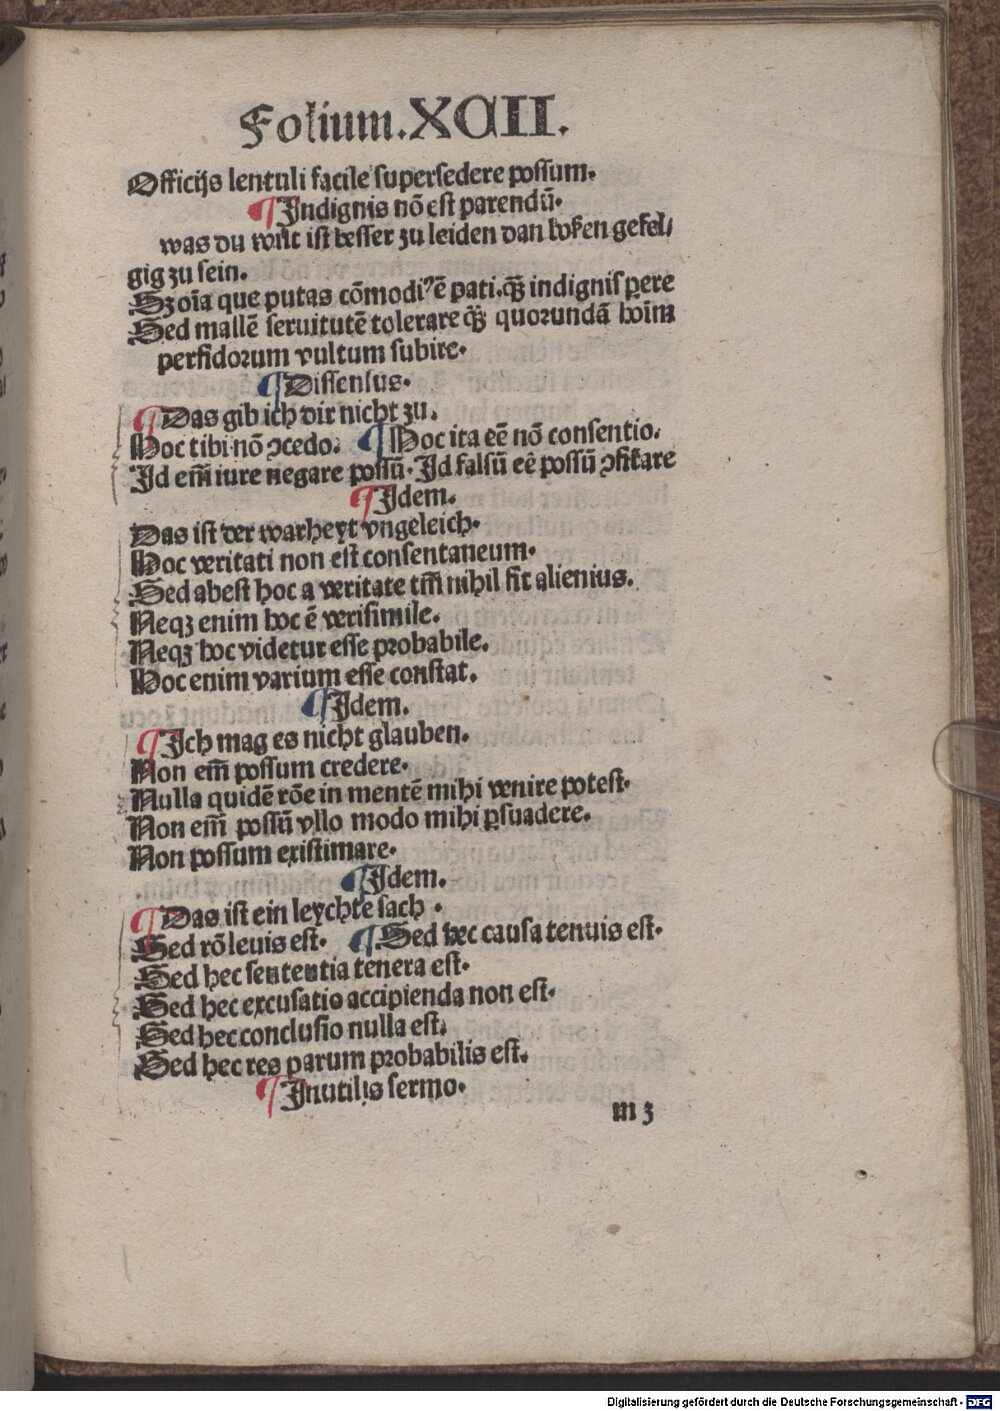 Folium.XCII.
Officijs lentuli facile supersedere possum.
¶Indignis nō est parendū.
was du wilt ist besser zu leiden dan bosen gefel/
gig zu sein.
Sꝫ oīa que putas cōmodiꝰ ē pati.qꝫ indignis ꝑere
Sed mallē seruitutē tolerare qꝫ quorundā hoīm
perfidorum vultum subire.
¶Dissensus.
¶Das gib ich dir nicht zu.
Hoc tibi nō ↄcedo. ¶Hoc ita eē nō consentio.
Id em̄ iure negare possū. Id falsū eē possū ↄfirmare
¶Idem.
Das ist der warheyt vngeleich.
Hoc veritati non est consentaneum.
Sed abest hoc a veritate tm̄ nihil fit alienius.
Neqꝫ enim hoc ē verisimile.
Neqꝫ hoc videtur esse probabile.
Hoc enim varium esse constat.
¶Idem.
¶Ich mag es nicht glauben.
Non em̄ possum credere.
Nulla quidē rōe in mentē mihi venire potest.
Non em̄ possū vllo modo mihi ꝑsuadere.
Non possum existimare.
¶Idem.
¶Das ist ein leychte sach .
Sed rō leuis est. ¶Sed hec causa tenuis est.
Sed hec sententia tenera est.
Sed hec excusatio accipienda non est.
Sed hec conclusio nulla est.
Sed hec res parum probabilis est.
¶Inutilis sermo.
m 3
Digitalisierung gefördert durch die Deutsche Forschungsgemeinschaft - DFG